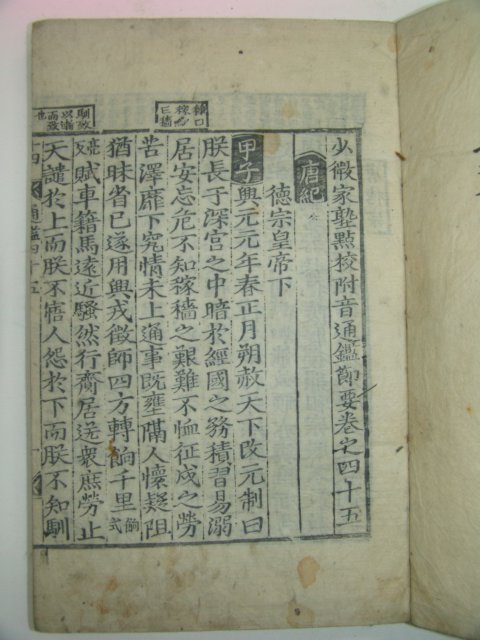 少微家塾點校附音通鑑節要卷之四十五
唐紀
德宗皇帝下
甲子興元元年春正月朔赦天下改元制曰
朕長于深宮之中暗於經國之務積習易溺
居安忘危不知稼穡之艱難不恤征戍之勞
苦澤靡下究情未上通事旣壅隔人懷疑阻
猶昧省己遂用興戎徵師四方轉餉千里餉式
亮反賦車籍馬遠近騷然行齎居送衆庶勞止
天譴於上而朕不寤人怨於下而朕不知馴
通鑑四十五
馴致
以漸
而致
也